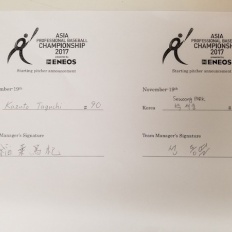 ASIA
PROFESSIONAL BASEBALL
CHAMPIONSHIP
2017
ENEOS
Starting pitcher announcement
November 19th
Kazuto Taguchi # 90
Team Manager's Signature
ASIA
PROFESSIONAL BASEBALL
CHAMPIONSHIP
2017
ENEOS
Starting pitcher announcement
November 19th
Korea
Team Manager's Signature